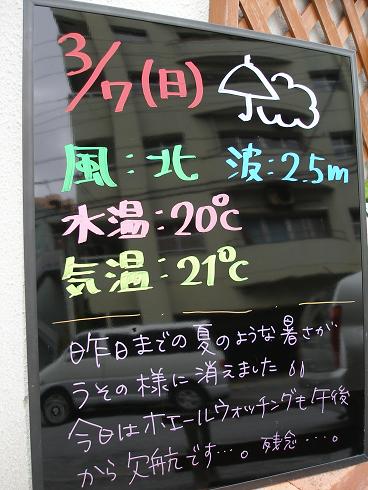 3/7(日)
風:北 波:2.5m
水温:20℃
気温:21℃
昨日までの夏のような暑さが
うその様に消えました
今日はホエールウォッチングも午後
から欠航です…。残念…。